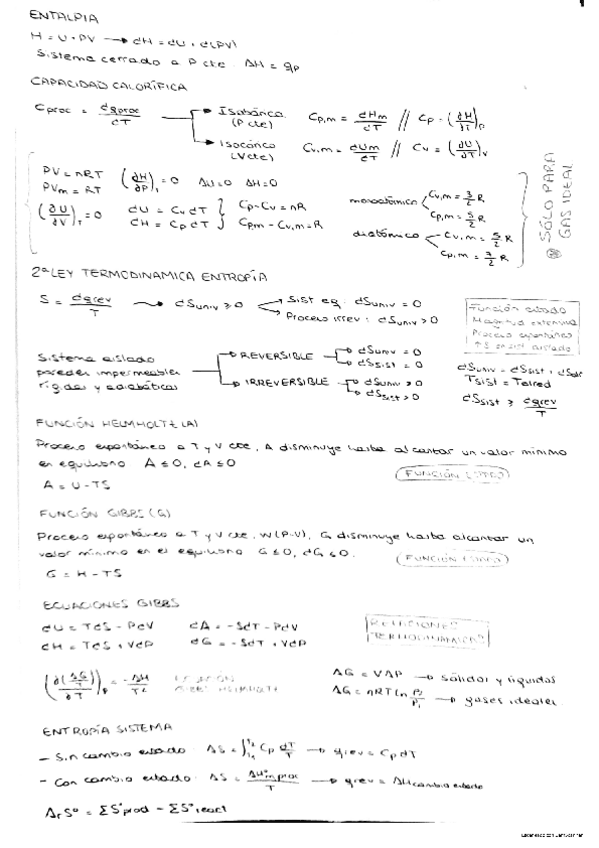 ENTALPIA
H = U + PV → dH = dU + d(PV)
Sistema cerrado a P cte. ΔH = qp
CAPACIDAD CALORÍFICA
Cproc = dqproc/dT → Isobárico (P cte) Cp,m = dHm/dT // Cp = (∂H/∂T)P
→ Isocórico (V cte) Cv,m = dUm/dT // Cv = (∂U/∂T)V
PV = nRT (∂H/∂P)T = 0 ΔU=0 ΔH=0
PVm = RT
(∂U/∂V)T = 0 dU = Cv dT Cp-Cv = nR
dH = Cp dT Cp,m - Cv,m = R
monoatómico Cv,m = 3/2 R
Cp,m = 5/2 R
diatómico Cv,m = 5/2 R
Cp,m = 7/2 R
SÓLO PARA
GAS IDEAL
2ª LEY TERMODINAMICA ENTROPÍA
S = dqrev/T → dSuniv ≥ 0 Sist eq: dSuniv = 0
Proceso irrev: dSuniv > 0
Función estado
Magnitud extensiva
Proceso espontáneo
↑S en sist aislado
Sistema aislado
paredes impermeables
rígidas y adiabáticas
REVERSIBLE dSuniv = 0
dSsist = 0
IRREVERSIBLE dSuniv > 0
dSsist > 0
dSuniv = dSsist + dSalr
Tsist = Talred
dSsist ≥ dqrev/T
FUNCIÓN HELMHOLTZ (A)
Proceso espontáneo a T y V cte, A disminuye hasta alcanzar un valor mínimo
en equilibrio A ≤ 0, dA ≤ 0
FUNCIÓN ESTADO
A = U - TS
FUNCIÓN GIBBS (G)
Proceso espontáneo a T y V cte, W(P-V), G disminuye hasta alcanzar un
valor mínimo en el equilibrio G ≤ 0, dG ≤ 0.
FUNCIÓN ESTADO
G = H - TS
ECUACIONES GIBBS
dU = TdS - PdV dA = -SdT - PdV
dH = TdS + VdP dG = -SdT + VdP
RELACIONES
TERMODINÁMICAS
(∂(ΔG/T)/∂T)P = -ΔH/T² ECUACIÓN
GIBBS HELMHOLTZ
ΔG = VΔP → sólidos y líquidos
ΔG = nRT ln P2/P1 → gases ideales
ENTROPÍA SISTEMA
- Sin cambio estado: ΔS = ∫T1T2 Cp dT/T → qrev = Cp dT
- Con cambio estado: ΔS = → qrev = ΔH cambio estado
ΔrS° = ΣS°prod - ΣS°react